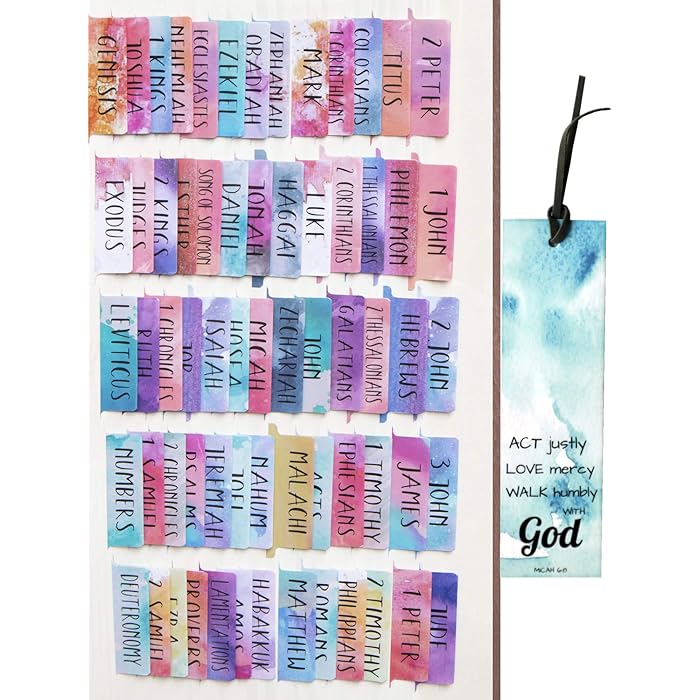 GENESIS
JOSHUA
1 KINGS
NEHEMIAH
ECCLESIASTES
EZEKIEL
OBADIAH
ZEPHANIAH
MARK
1 CORINTHIANS
COLOSSIANS
TITUS
2 PETER
EXODUS
JUDGES
2 KINGS
ESTHER
SONG OF SOLOMON
DANIEL
JONAH
HAGGAI
LUKE
2 CORINTHIANS
1 THESSALONIANS
PHILEMON
1 JOHN
LEVITICUS
RUTH
1 CHRONICLES
JOB
ISAIAH
HOSEA
MICAH
ZECHARIAH
JOHN
GALATIANS
2 THESSALONIANS
HEBREWS
2 JOHN
NUMBERS
1 SAMUEL
2 CHRONICLES
PSALMS
JEREMIAH
JOEL
NAHUM
MALACHI
ACTS
EPHESIANS
1 TIMOTHY
JAMES
3 JOHN
DEUTERONOMY
2 SAMUEL
EZRA
PROVERBS
LAMENTATIONS
AMOS
HABAKKUK
MATTHEW
ROMANS
PHILIPPIANS
2 TIMOTHY
1 PETER
JUDE
ACT justly
LOVE mercy
WALK humbly
WITH
God
MICAH 6:8